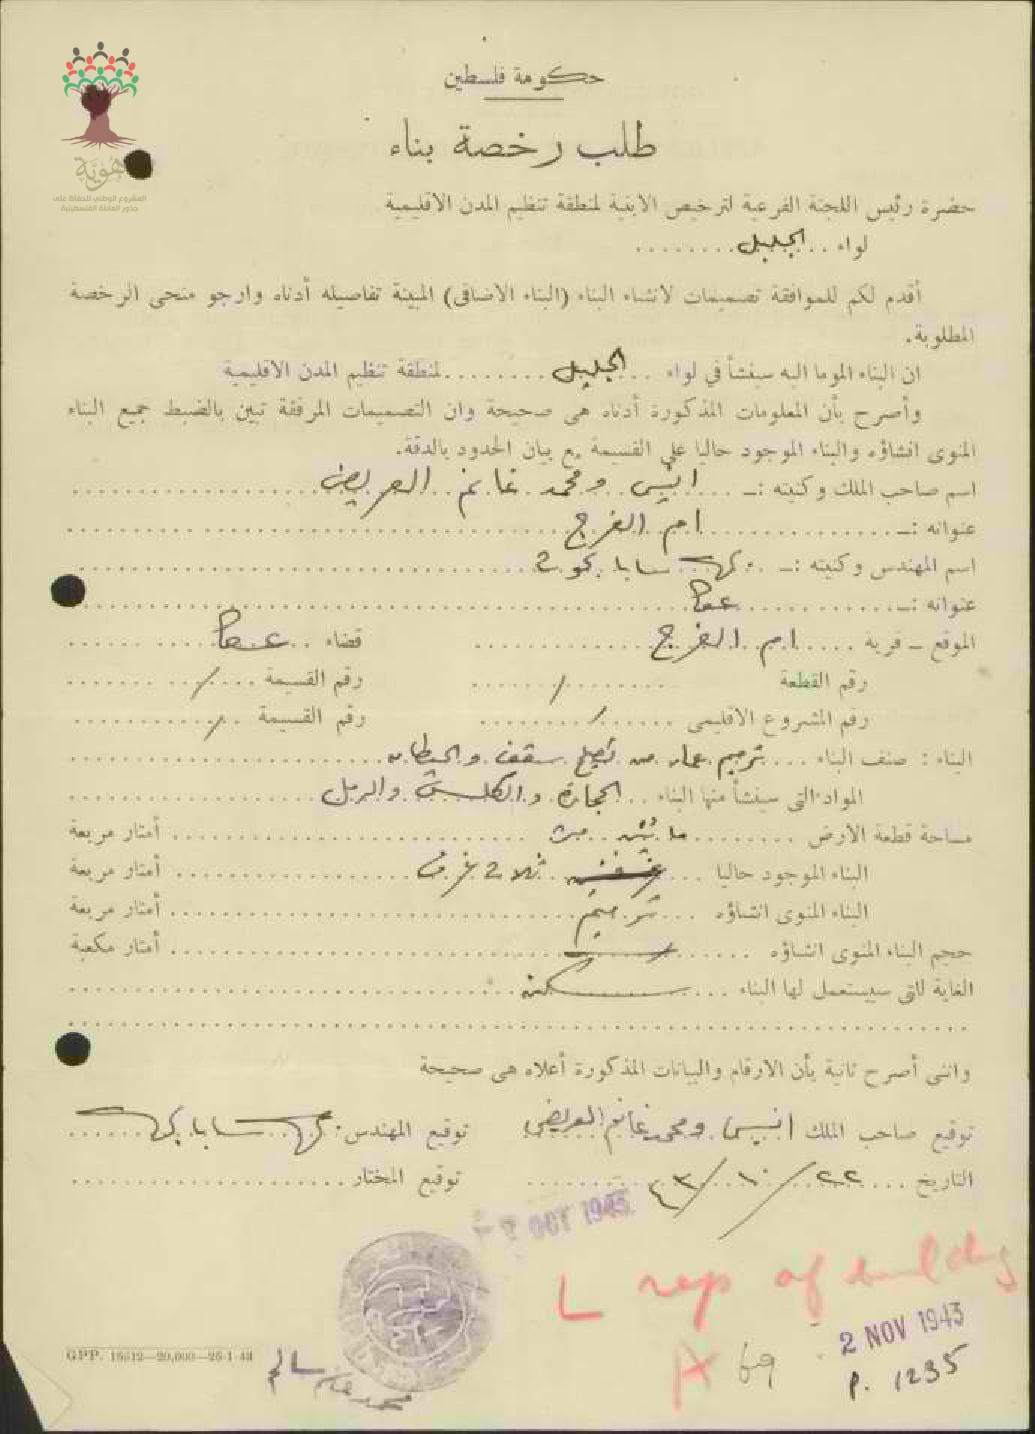 هُوِيَّة
المشروع الوطني للحفاظ على
جذور العائلة الفلسطينية
حكومة فلسطين
طلب رخصة بناء
حضرة رئيس اللجنة الفرعية لترخيص الابنية لمنطقة تنظيم المدن الاقليمية
لواء .. الجليل ........
أقدم لكم للموافقة تصميمات لانشاء البناء (البناء الاضافى) المبينة تفاصيله أدناه وارجو منحى الرخصة
المطلوبة.
ان البناء الموما اليه سينشأ في لواء ... الجليل ........ لمنطقة تنظيم المدن الاقليمية
وأصرح بأن المعلومات المذكورة أدناه هى صحيحة وان التصميمات المرفقة تبين بالضبط جميع البناء
المنوى انشاؤه والبناء الموجود حاليا على القسيمة مع بيان الحدود بالدقة.
اسم صاحب الملك وكنيته :ــ ... انيس ومحمد غانم العريض
عنوانه :ــ ... ام الفرج
اسم المهندس وكنيته :ــ ... سابا
عنوانه :ــ ... عكا
الموقع ــ قرية ... ام الفرج ... قضاء .. عكا
رقم القطعة ... / ... رقم القسيمة ... /
رقم المشروع الاقليمى ... / ... رقم القسيمة ... /
البناء : صنف البناء ... ترميم عمار من سقف والحيطان
المواد التى سينشأ منها البناء .. الحجارة والكلس والرمل
مساحة قطعة الارض ... أمتار مربعة
البناء الموجود حاليا ... ثلاث غرف ... أمتار مربعة
البناء المنوى انشاؤه ... ترميم ... أمتار مربعة
حجم البناء المنوى انشاؤه ... أمتار مكعبة
الغاية لاتى سيستعمل لها البناء ... سكن
وانى أصرح ثانية بأن الارقام والبيانات المذكورة أعلاه هى صحيحة
توقيع صاحب الملك انيس ومحمد غانم العريض توقيع المهندس . سابا
التاريخ ... ٢٢/١٠/٤٣ ... توقيع المختار
OCT 1943
L rep of building
2 NOV 1943
A 69 P. 1235
GPP. 16512—20,000—26-1-43